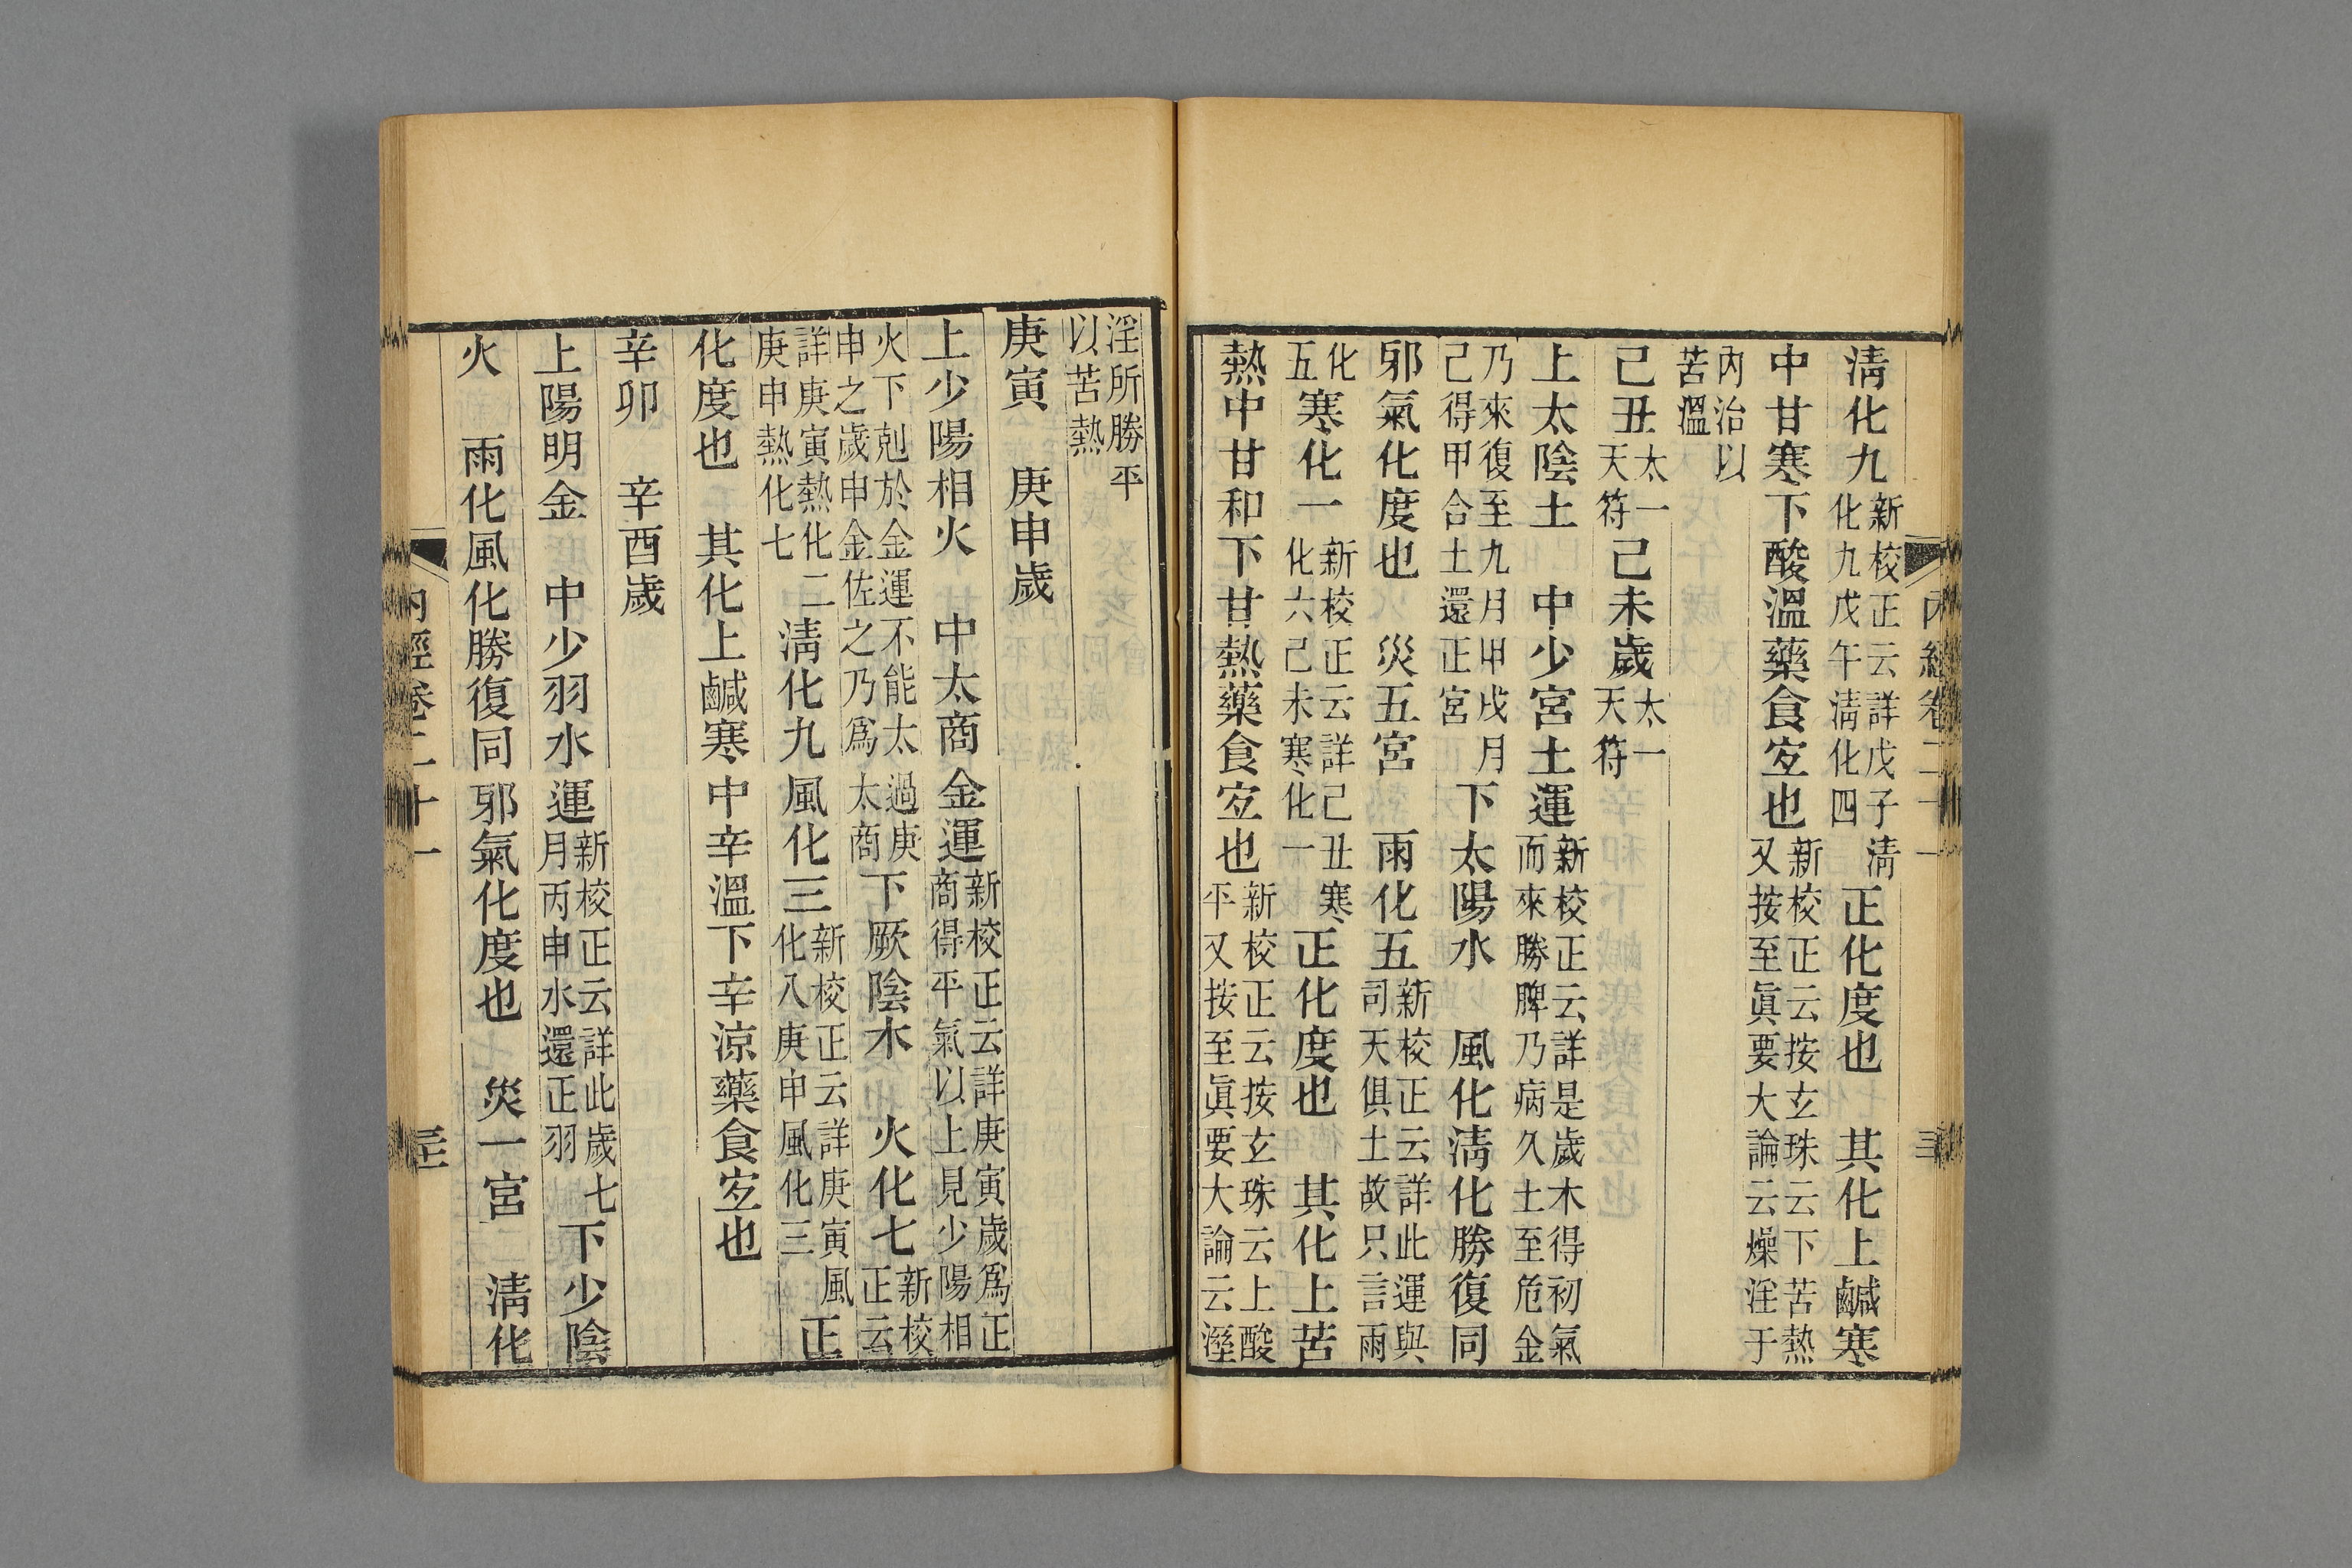 清化九新校正云詳戊子清化九戊午清化四正化度也　其化上鹹寒
中甘寒下酸溫藥食宜也新校正云按玄珠云下苦熱又按至眞要大論云燥淫于
內治以苦溫
己丑太一天符　己未歲太一天符
上太陰土　中少宮土運新校正云詳是歲木得初氣而來勝脾乃病久土至危金
乃來復至九月甲戌月己得甲合土還正宮　下太陽水　風化淸化勝復同
邪氣化度也　災五宮　雨化五新校正云詳此運與司天俱土故只言雨
化五　寒化一新校正云詳己丑寒化六己未寒化一　正化度也　其化上苦
熱中甘和下甘熱藥食宜也新校正云按玄珠云上酸平又按至眞要大論云溼
淫所勝平以苦熱
庚寅　庚申歲
上少陽相火　中太商金運新校正云詳庚寅歲爲正商得平氣以上見少陽相
火下剋於金運不能太過庚申之歲申金佐之乃爲太商　下厥陰木　火化七新校正云
詳庚寅熱化二庚申熱化七　淸化九　風化三新校正云詳庚寅風化八庚申風化三　正
化度也　其化上鹹寒中辛溫下辛涼藥食宜也
辛卯　辛酉歲
上陽明金　中少羽水運新校正云詳此歲七月丙申水還正羽　下少陰
火　雨化風化勝復同邪氣化度也　災一宮　淸化
內經卷二十一